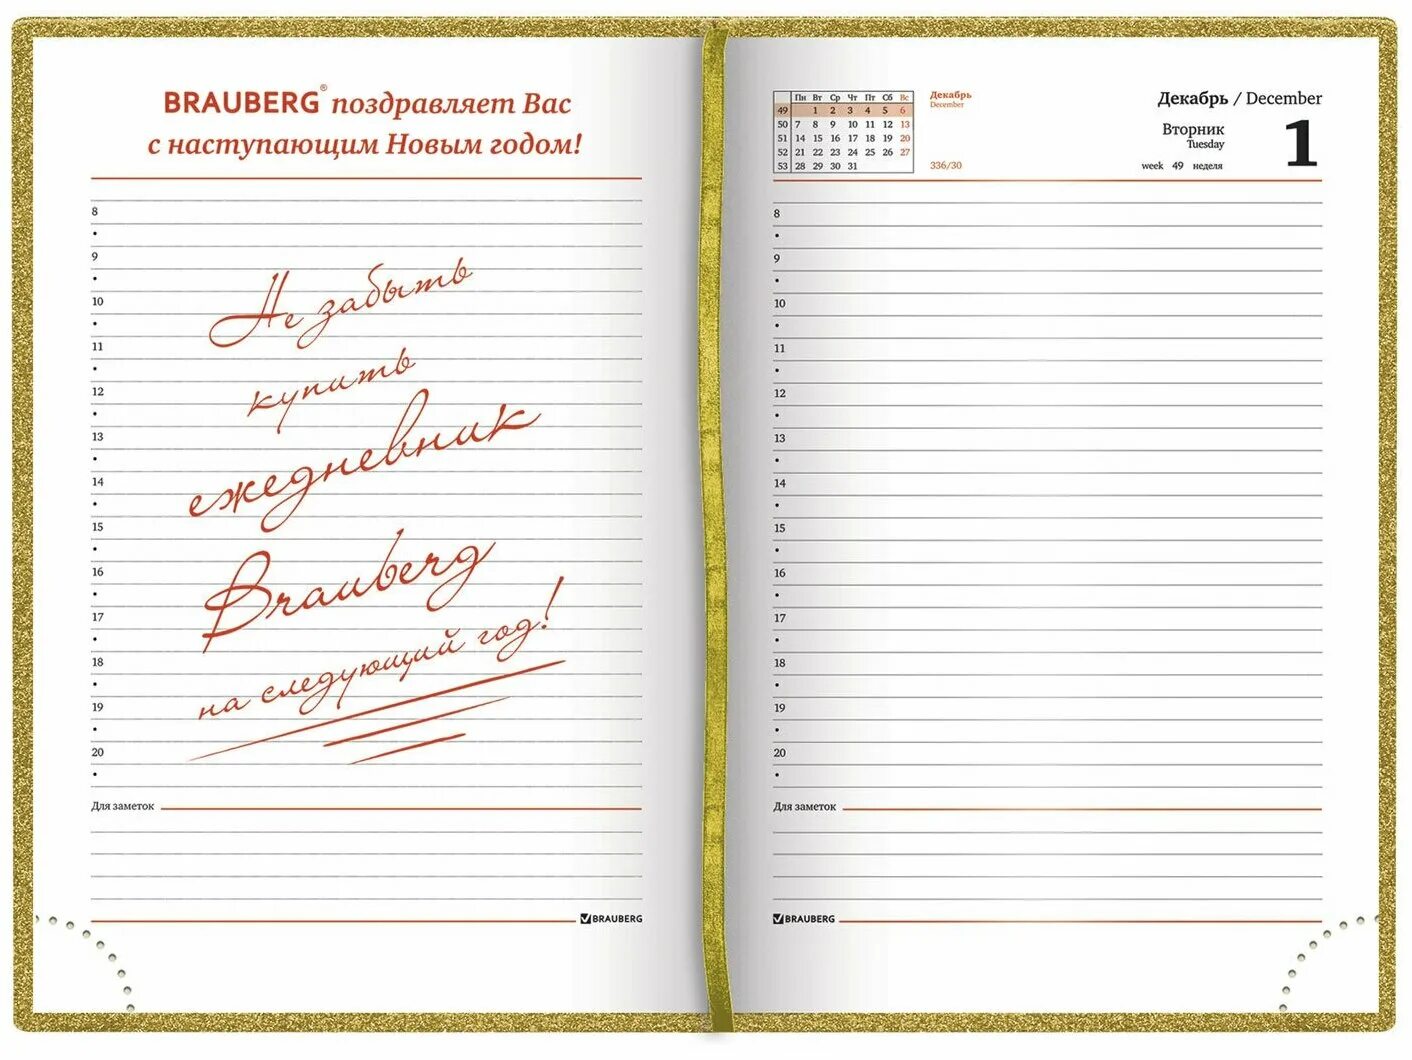 BRAUBERG® поздравляет Вас
с наступающим Новым годом!
8
9
10
11
12
13
14
15
16
17
18
19
20
Не забыть
купить
ежедневник
Brauberg
на следующий год!
Для заметок
BRAUBERG
Пн Вт Ср Чт Пт Сб Вс
49 1 2 3 4 5 6
50 7 8 9 10 11 12 13
51 14 15 16 17 18 19 20
52 21 22 23 24 25 26 27
53 28 29 30 31
Декабрь
December
336/30
Декабрь / December
Вторник
Tuesday
week 49 неделя
1
8
9
10
11
12
13
14
15
16
17
18
19
20
Для заметок
BRAUBERG